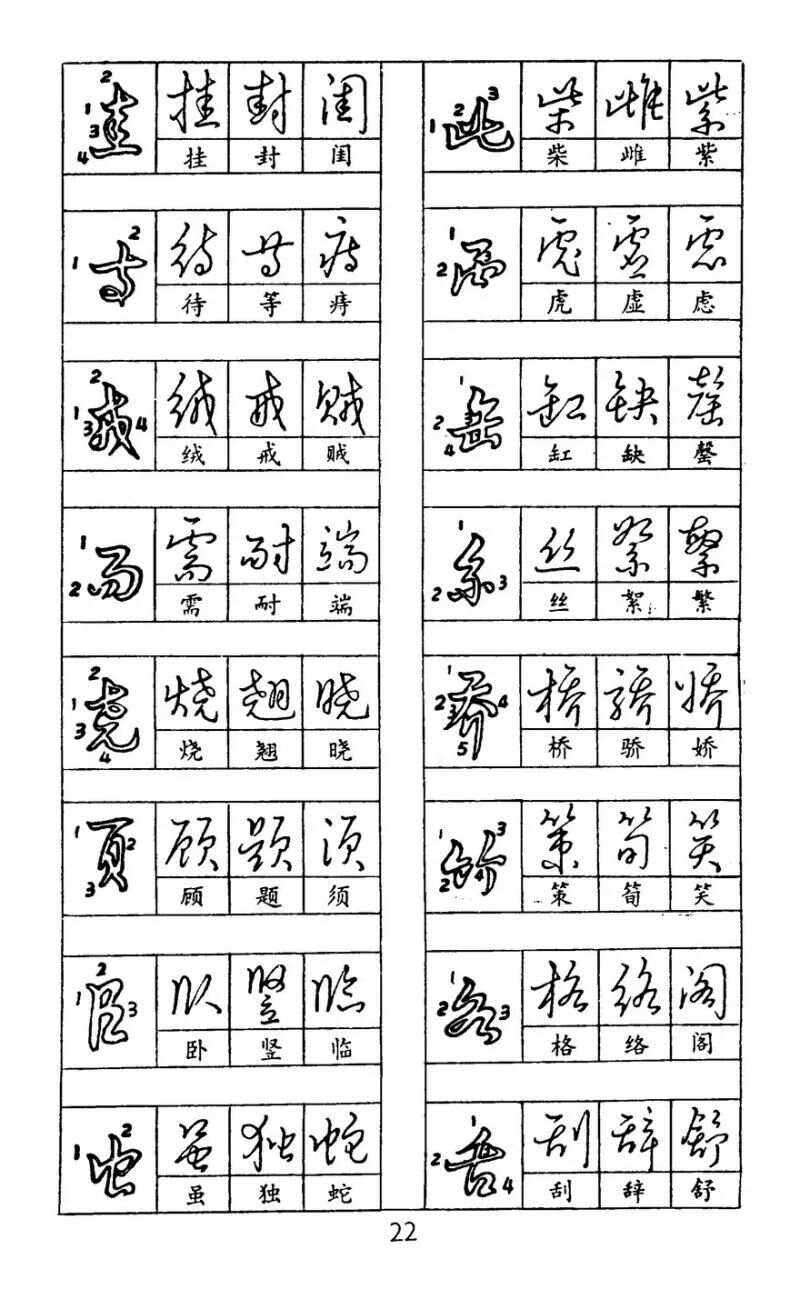 圭 挂 封 闺
挂 封 闺
寺 待 等 痔
待 等 痔
戎 绒 戒 贼
绒 戒 贼
而 需 耐 端
需 耐 端
尧 烧 翘 晓
烧 翘 晓
页 顾 题 须
顾 题 须
臣 卧 竖 临
卧 竖 临
虫 虽 独 蛇
虽 独 蛇
此 柴 雌 紫
柴 雌 紫
虎 虚 虑
虎 虚 虑
缶 缸 缺 罄
缸 缺 罄
糸 丝 絮 繁
丝 絮 繁
乔 桥 骄 娇
桥 骄 娇
策 筍 笑
策 筍 笑
各 格 络 阁
格 络 阁
舌 刮 辞 舒
刮 辞 舒
22